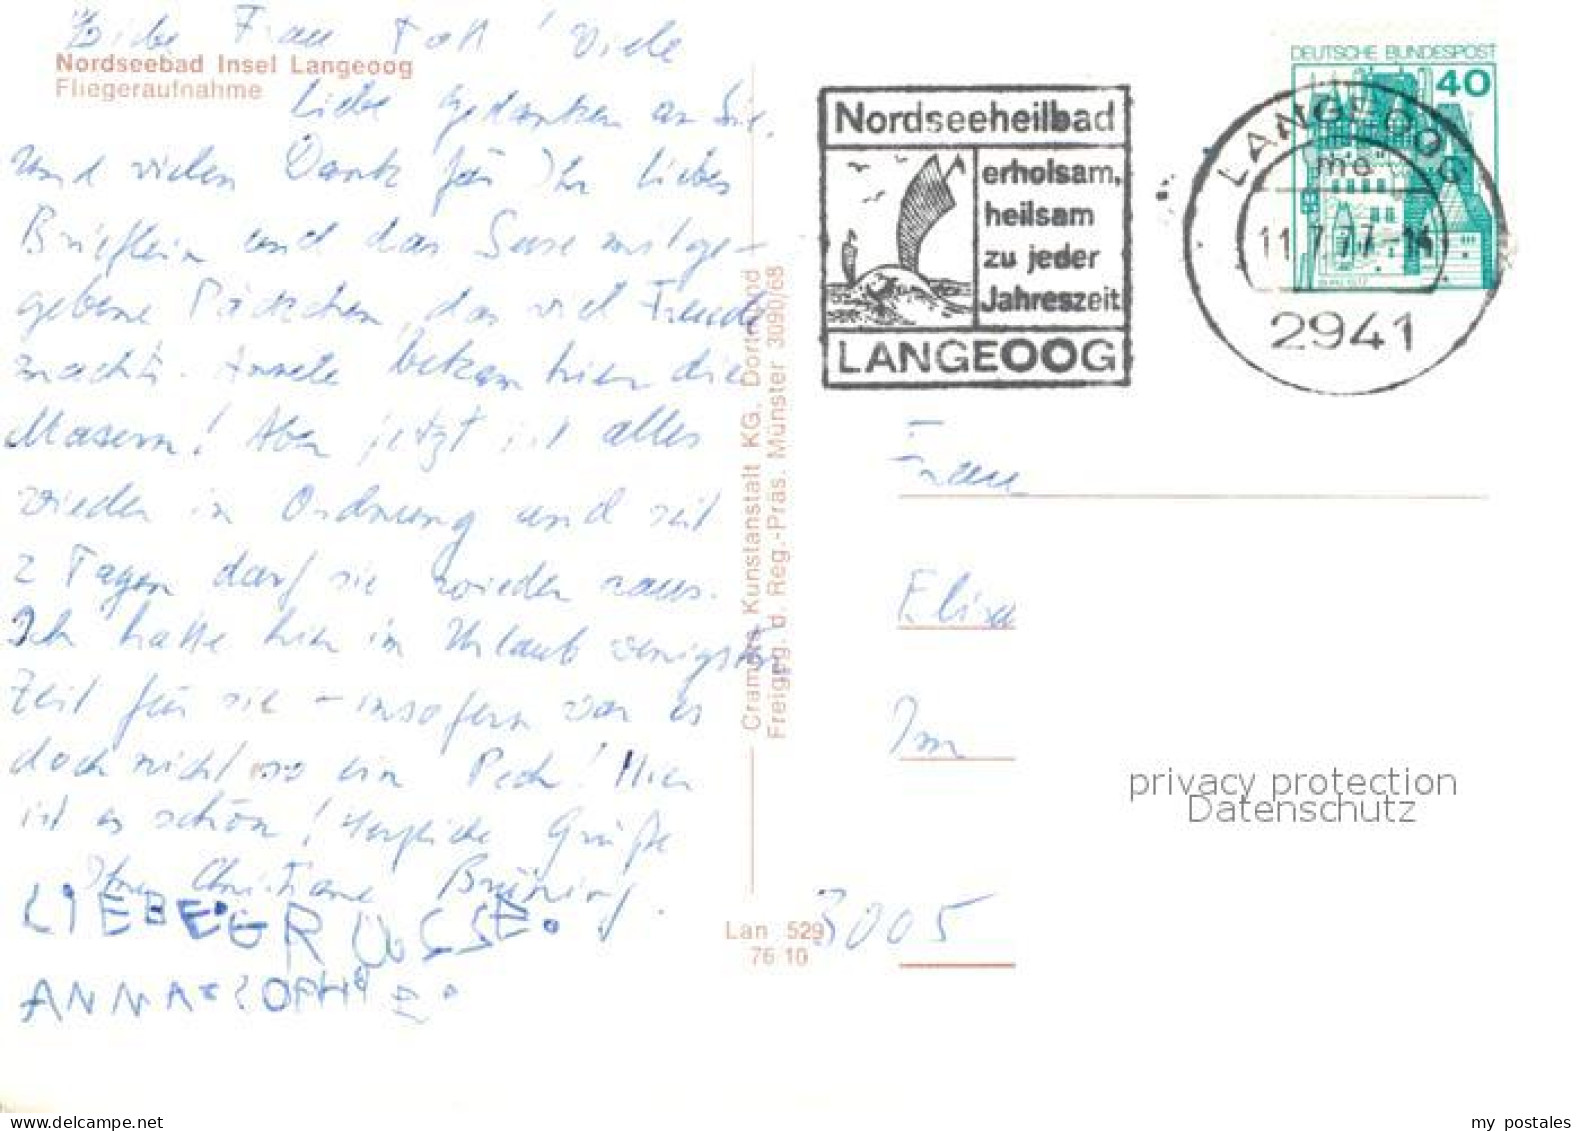 Liebe Frau Toll! Viele
Nordseebad Insel Langeoog
Fliegeraufnahme
liebe Gedanken an Sie.
Und vielen Dank für Ihr liebes
Brieflein und das Suse mitge-
gebene Päckchen, das viel Freude
machte. Annele bekam hier die
Masern! Aber jetzt ist alles
wieder in Ordnung und seit
2 Tagen darf sie wieder raus.
Ich hatte hier im Urlaub wenigstens
Zeit für sie - insofern war es
doch nicht so ein Pech! Hier
ist es schön! Herzliche Grüße
Ihre Christiane Brüning.
LIEBE GRÜSSE.
ANNA SOPHIE.
Cramers Kunstanstalt KG, Dortmund
Freigeg. d. Reg.-Präs. Münster 3090/68
Lan 529
76 10
Nordseeheilbad
erholsam,
heilsam
zu jeder
Jahreszeit
LANGEOOG
DEUTSCHE BUNDESPOST
40
LANGEOOG
11.7.77-14
2941
Frau
Elisa
Im
3005
privacy protection
Datenschutz
my postales